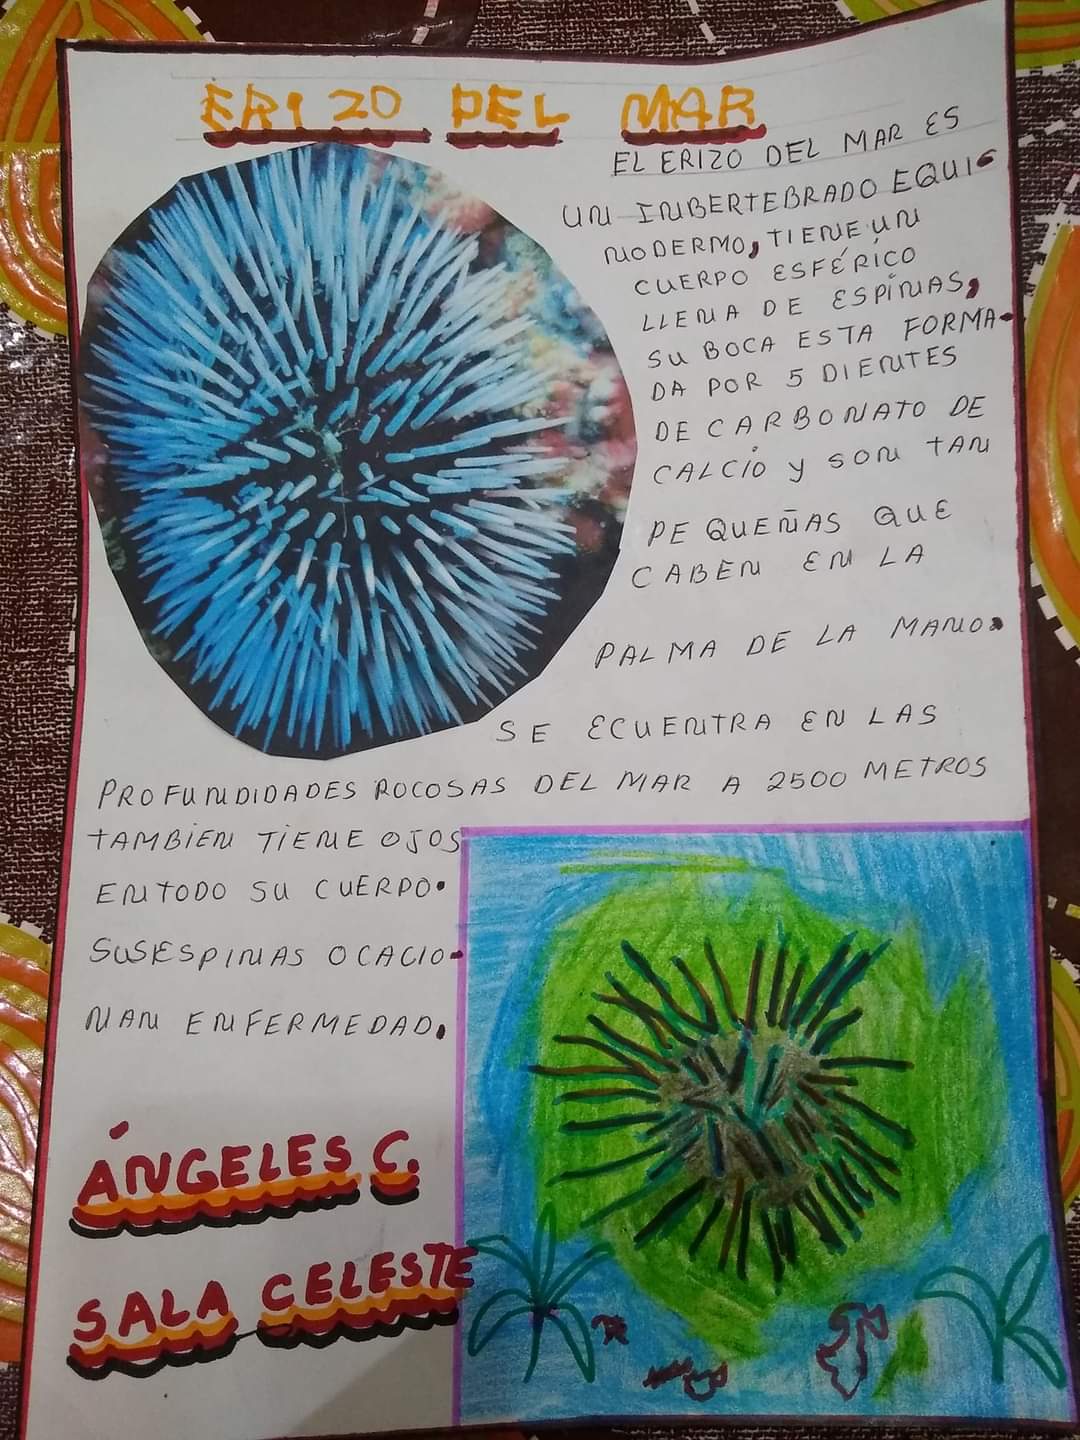 ERIZO DEL MAR
EL ERIZO DEL MAR ES
UN INBERTEBRADO EQUI-
NODERMO, TIENE UN
CUERPO ESFÉRICO
LLENA DE ESPINAS,
SU BOCA ESTA FORMA-
DA POR 5 DIENTES
DE CARBONATO DE
CALCIO Y SON TAN
PEQUEÑAS QUE
CABEN EN LA
PALMA DE LA MANO.
SE ECUENTRA EN LAS
PROFUNDIDADES ROCOSAS DEL MAR A 2500 METROS
TAMBIEN TIENE OJOS
EN TODO SU CUERPO.
SUS ESPINAS OCACIO-
NAN ENFERMEDAD.
ÁNGELES C.
SALA CELESTE